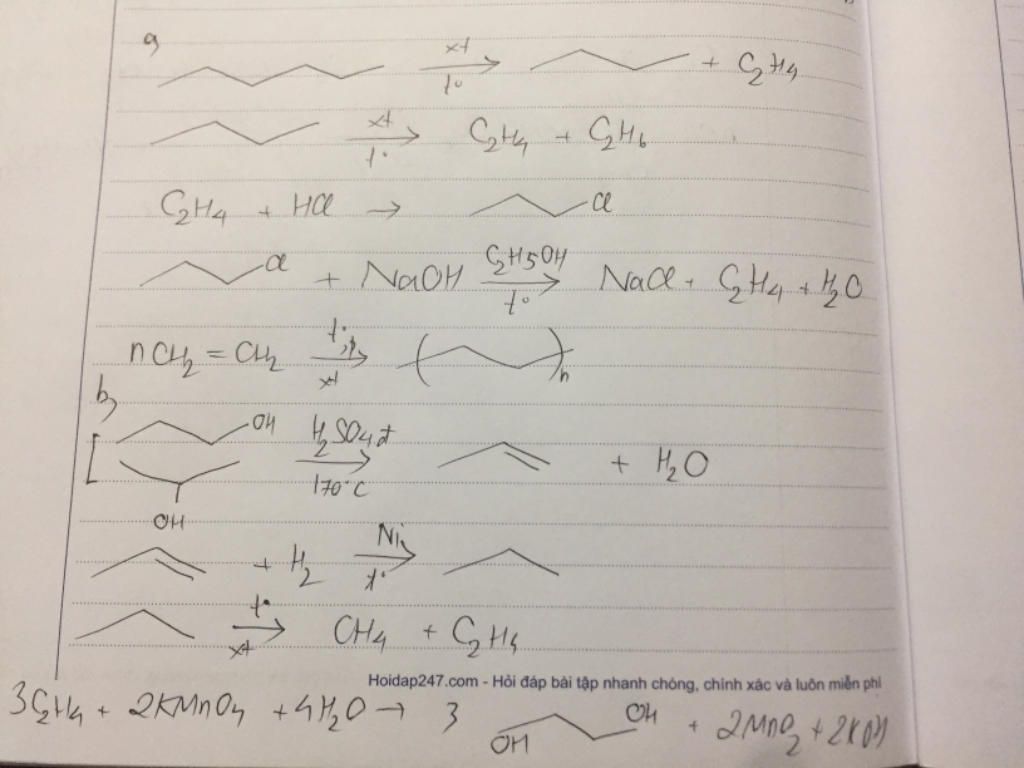 a
xt
t° + C2H4
xt
t° C2H4 + C2H6
C2H4 + HCl → Cl
Cl + NaOH C2H5OH
t° NaCl + C2H4 + H2O
nCH2 = CH2 t°, p
xt ( )n
b)
OH H2SO4 đ
170°C + H2O
OH
+ H2 Ni,
t°
t°
xt CH4 + C2H4
Hoidap247.com - Hỏi đáp bài tập nhanh chóng, chính xác và luôn miễn phí
3C2H4 + 2KMnO4 + 4H2O → 3 OH OH + 2MnO2 + 2KOH